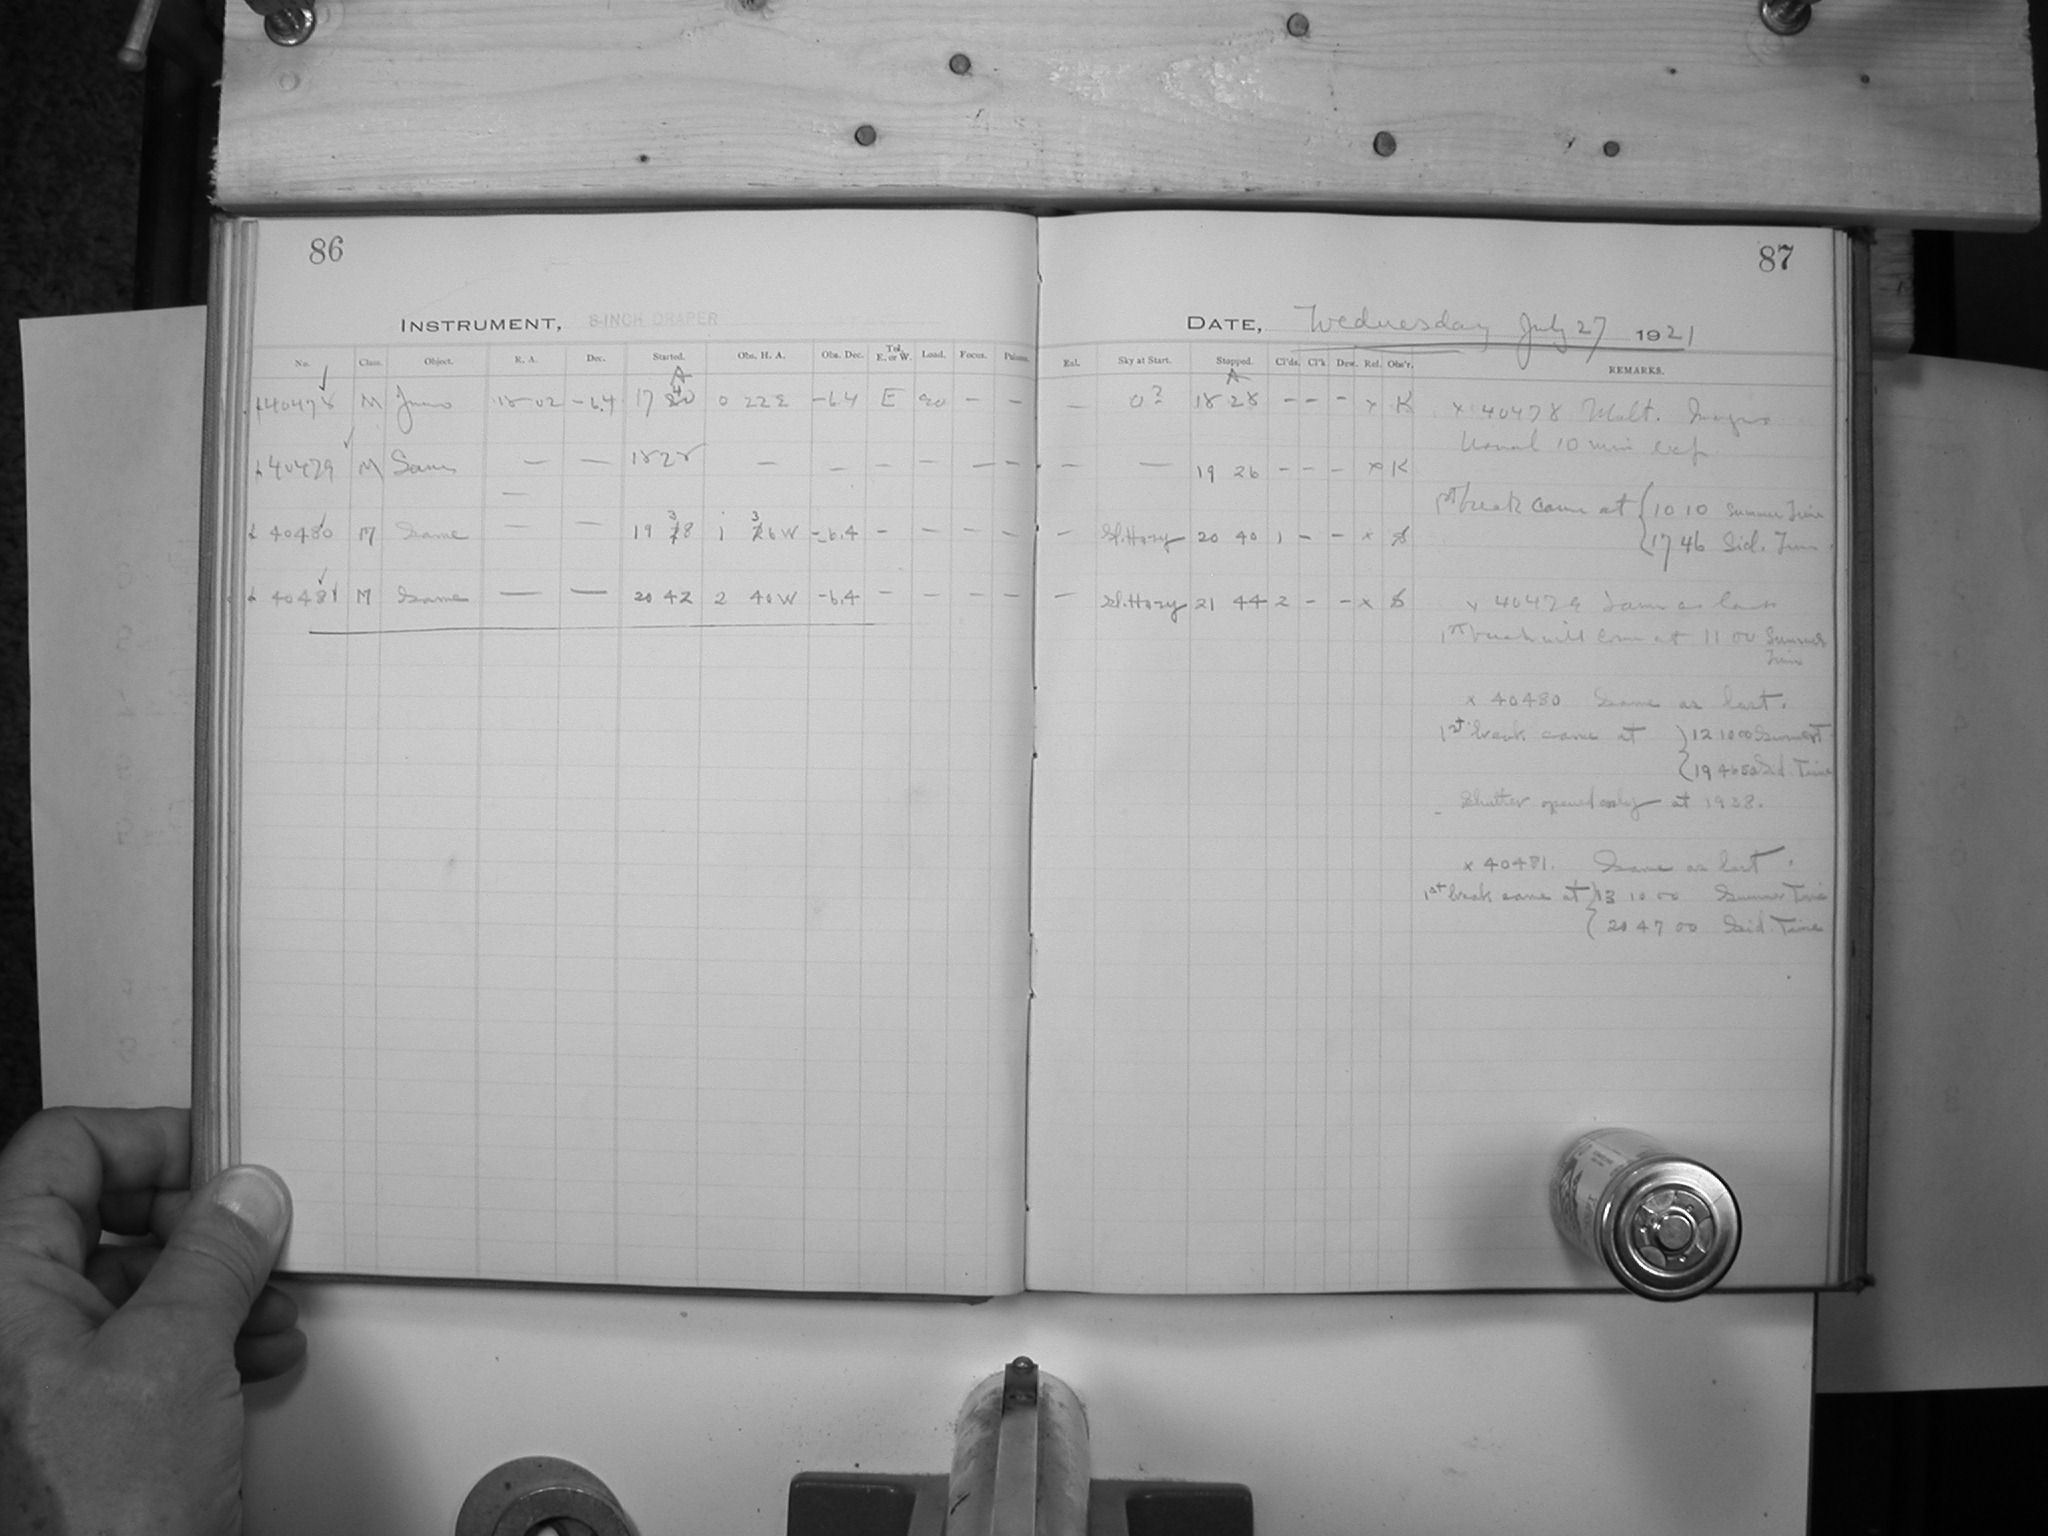 86
87
INSTRUMENT, 8-INCH DRAPER
DATE, Wednesday July 27 1921
No. Class. Object. R. A. Dec. Started. Obs. H. A. Obs. Dec. Tel. E. or W. Load. Focus.
Exl. Sky at Start. Stopped. Cl'ds. Cl'k. Dew. Rel. Obs'r. REMARKS.
A
A
40478 M Juno 18 02 -6.4 17 40 0 22 E -6.4 E 20 - -
- 0? 18 28 - - - x K
40479 M Same — — 18 28 — — — — — —
— — 19 26 - - - x K
40480 M Same — — 19 38 1 36 W -6.4 - - - -
— Sl. Hazy 20 40 1 - - x
40481 M Same — — 20 42 2 40 W -6.4 - - - -
— Sl. Hazy 21 44 2 - - x
x 40478 Mult. Images
Usual 10 min exp.
1st break came at 10 10 Summer Time
17 46 Sid. Time
x 40479 Same as last
1st break will come at 11 00 Summer
Time
x 40480 Same as last.
1st break came at 12 10 00 Summer T
19 46 50 Sid. Time
Shutter opened only at 19 38.
x 40481. Same as last.
1st break came at 13 10 00 Summer Time
20 47 00 Sid. Time